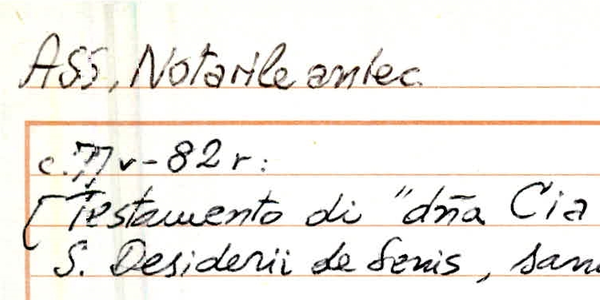 ASS, Notarile antec.
c. 77v-82r:
[Testamento di "dña Cia
S. Desiderii de Senis, san